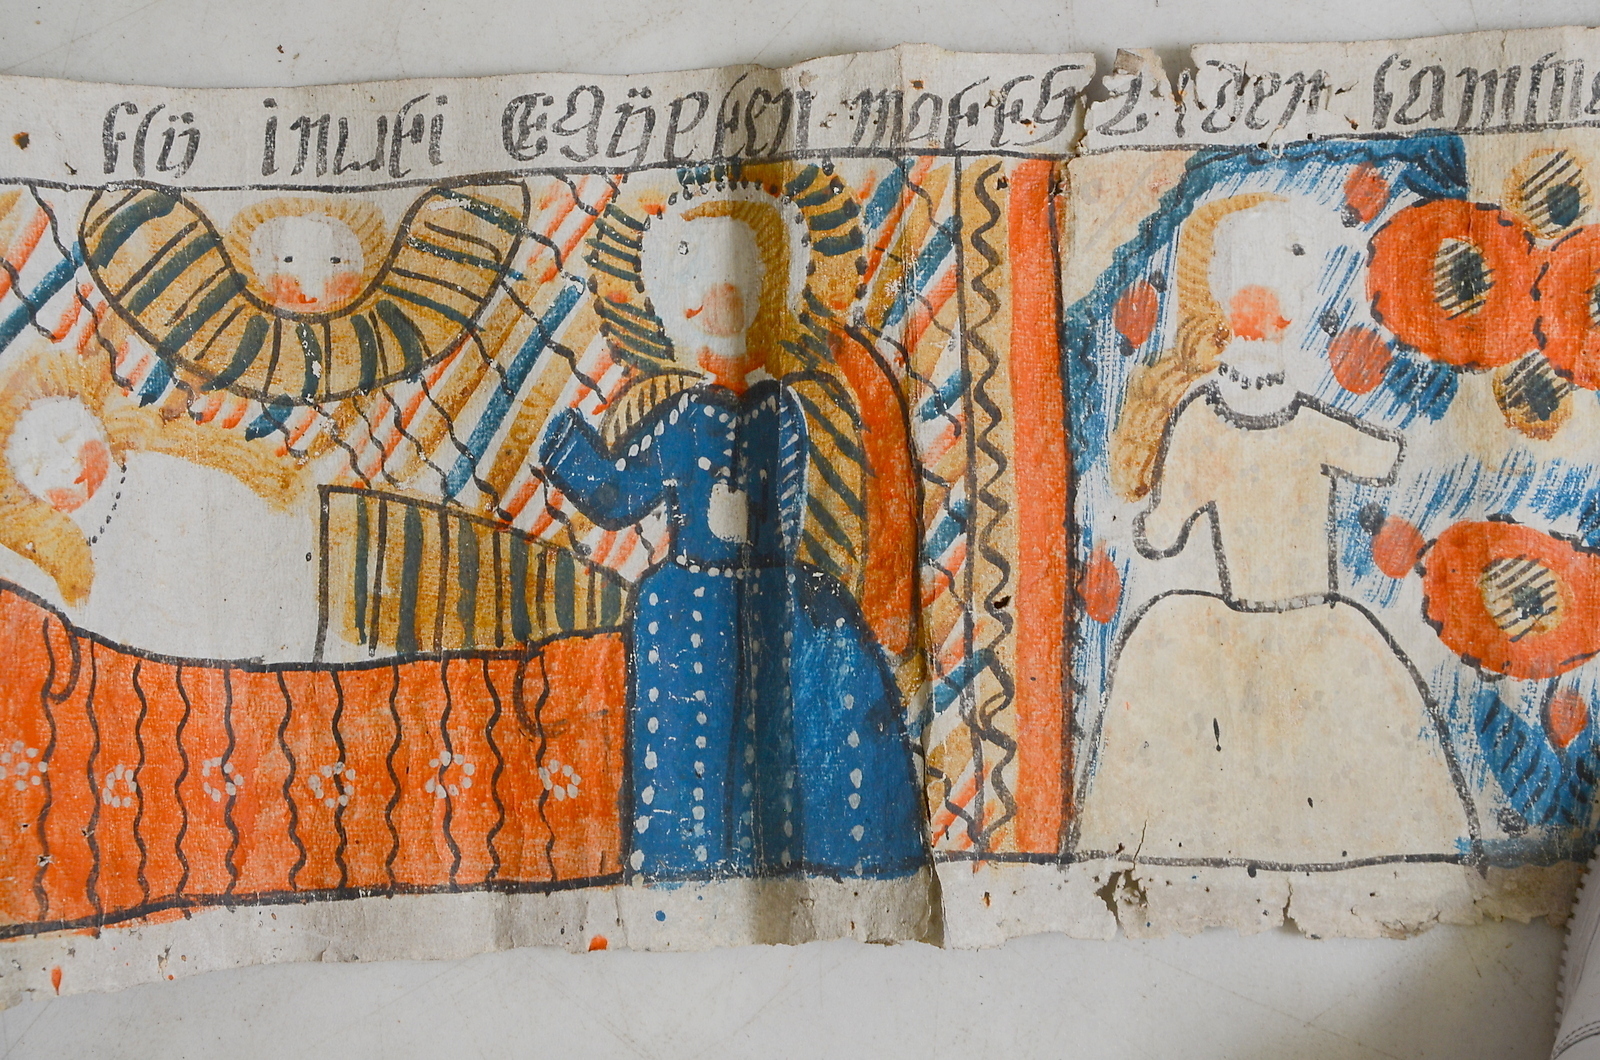 flÿ in uti EGÿpten matth 2 den samme